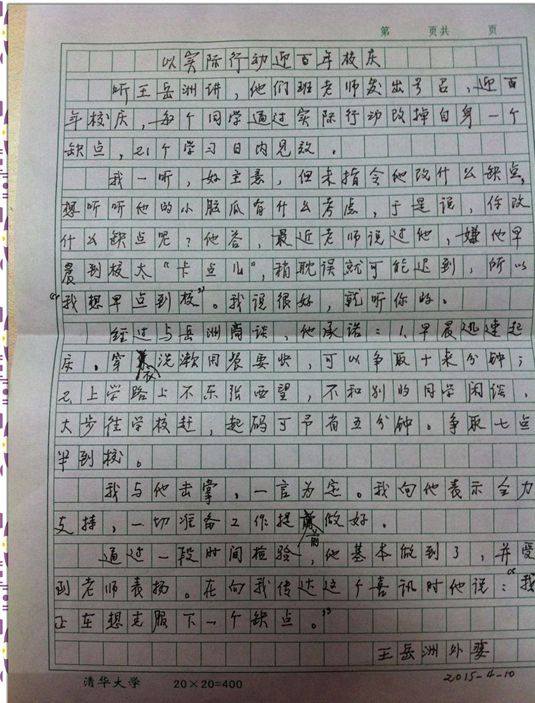 第 页共 页
以实际行动迎百年校庆
听王岳洲讲，他们班老师发出号召，迎百
年校庆，每个同学通过实际行动改掉自身一个
缺点，21个学习日内见效。
我一听，好主意，但未指令他改什么缺点，
想听听他的小脑瓜有什么考虑，于是说，你改
什么缺点呢？他答，最近老师说过他，嫌他早
晨到校太“卡点儿”，稍耽误就可能迟到，所以
“我想早点到校”。我说很好，就听你的。
经过与岳洲商谈，他承诺：1.早晨迅速起
床。穿衣洗漱用餐要快，可以争取十来分钟；
2.上学路上不东张西望，不和别的同学闲谈，
大步往学校赶，起码可节省五分钟。争取七点
半到校。
我与他击掌，一言为定。我向他表示全力
支持，一切准备工作提前做好。
通过一段时间检验，他基本做到了，并受
到老师表扬。在向我传达这个喜讯时他说：“我
正在想克服下一个缺点。”
王岳洲外婆
2015-4-10
清华大学 20×20=400